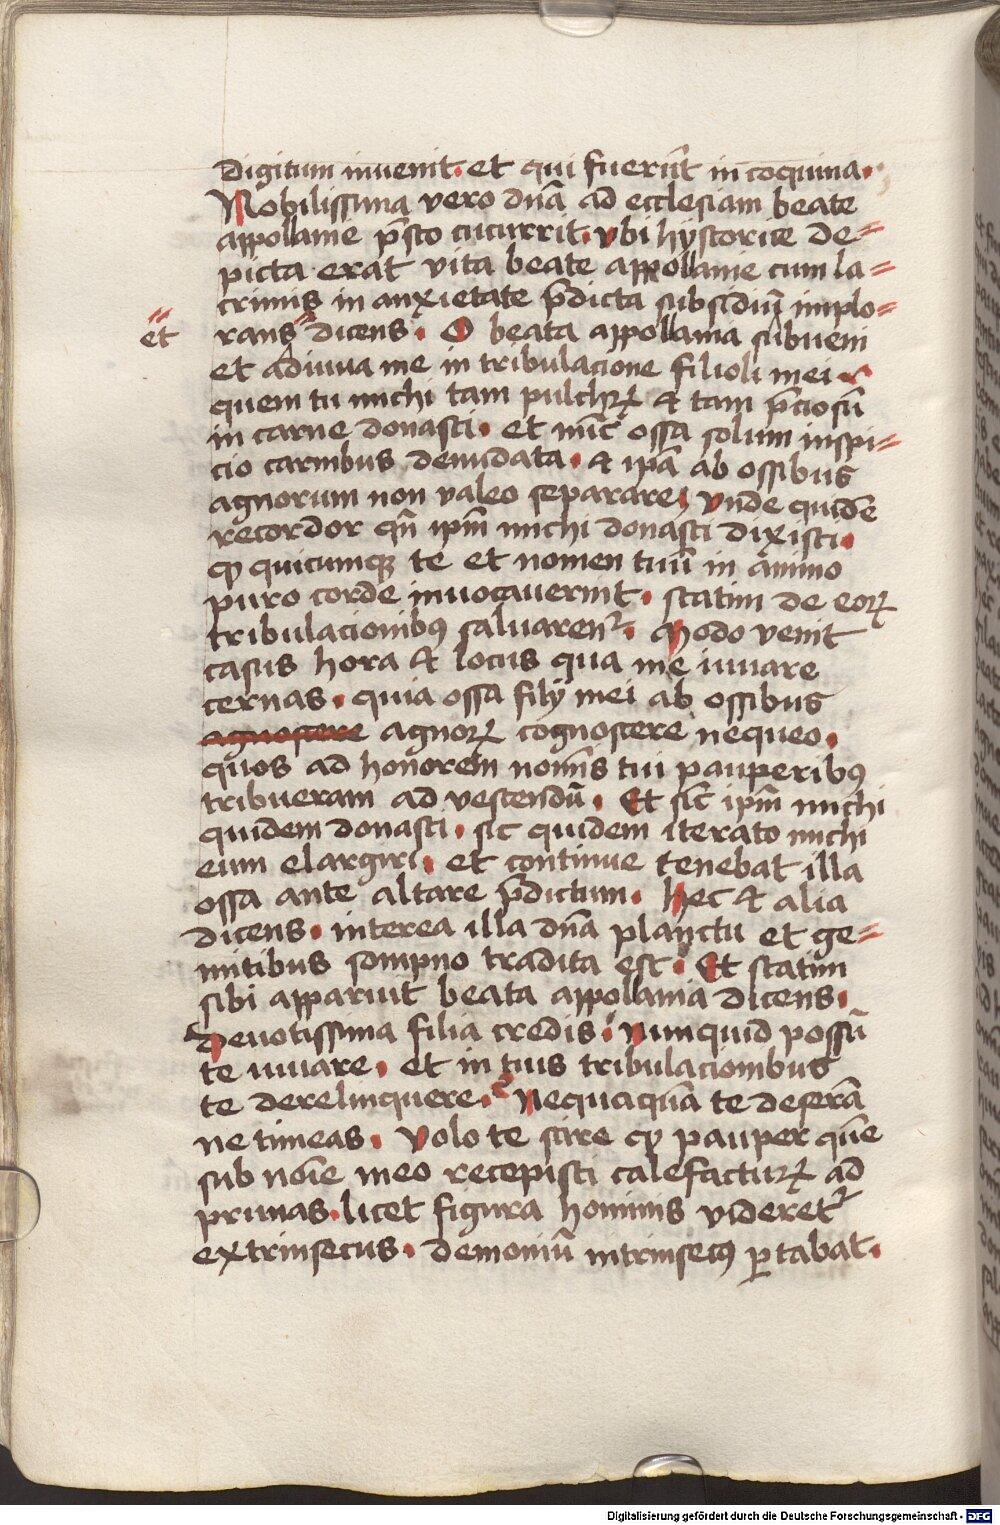 digitum inuenit. et qui fuerūt in coquina.
Nobilissima vero dnā ad ecclesiam beate
appollanie p̄sto cucurrit. vbi hystorice de=
picta erat vita beate appollanie cum la=
crimis in anxietate p̄dicta subsidiū implo=
et rans dicens. O beata appollania subueni
et adiuua me in tribulacione filioli mei
quem tu michi tam pulchrꝝ & tam p̄ciosū
in carne donasti. et nūc ossa solum inspi=
cio carnibus denudata. & ip̄a ab ossibus
agnorum non valeo separare. vnde quidē
recordor qn̄ ip̄m michi donasti dixisti.
ꝙ quicumqꝫ te et nomen tuū in animo
puro corde inuocauerint. statim de eoꝝ
tribulacionibꝰ saluarent᷑. Modo venit
casus hora & locus qua me iuuare
cernas. quia ossa filij mei ab ossibus
agnoscere agnoꝝ cognoscere nequeo.
quos ad honorem nom̄is tui pauperibꝰ
tribueram ad vescendū. Et sic̄ ip̄m michi
quidem donasti. sic quidem iterato michi
eum elargiri. et continue tenebat illa
ossa ante altare p̄dictum. hec & alia
dicens. interea illa dn̄a planctu et ge=
mitibus sompno tradita est. Et statim
sibi apparuit beata appollania dicens.
Deuotissima filia credis. numquid possū
te iuuare. et in tuis tribulacionibus
te derelinquere. Nequaquā te deserā
ne timeas. Volo te scire ꝙ pauper quē
sub noīe meo recepisti calefacturꝝ ad
prunas. licet figura hominis videret᷑
extrinsecus. demoniū intrinsecꝰ ꝑtabat.
Digitalisierung gefördert durch die Deutsche Forschungsgemeinschaft - DFG